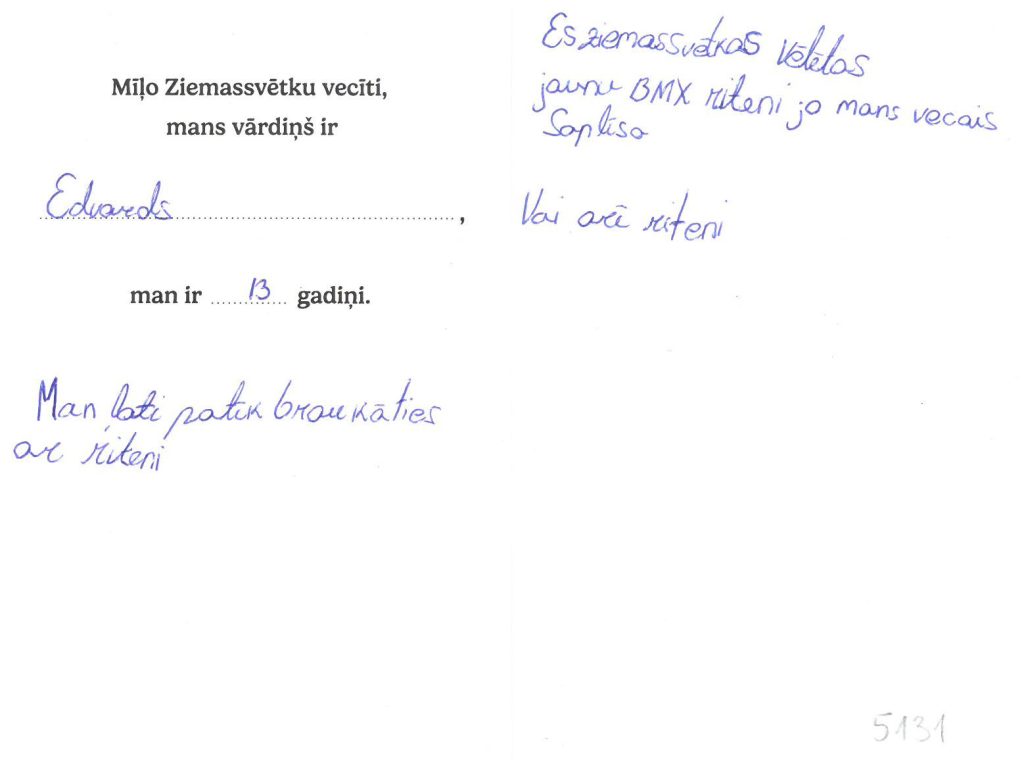 Mīļo Ziemassvētku vecīti,
mans vārdiņš ir
Edvards,
man ir 13 gadiņi.
Man ļoti patik braukāties
ar riteni
Es ziemassvētkos vēlētos
jaunu BMX riteni jo mans vecais
Saplīsa
Vai arī riteni
5131